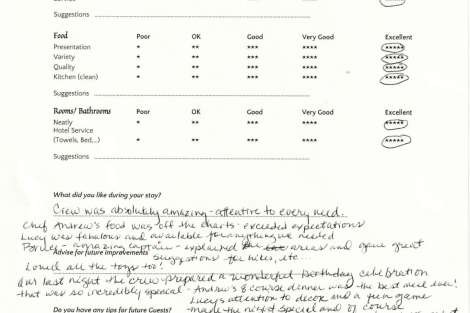 Suggestions
Food Poor OK Good Very Good Excellent
Presentation * ** *** **** *****
Variety * ** *** **** *****
Quality * ** *** **** *****
Kitchen (clean) * ** *** **** *****
Suggestions
Rooms/ Bathrooms Poor OK Good Very Good Excellent
Neatly * ** *** **** *****
Hotel Service
(Towels, Bed...) * ** *** **** *****
Suggestions
What did you like during your stay?
Crew was absolutely amazing - attentive to every need.
Chef Andrew's food was off the charts - exceeded expectations
Lucy was fabulous and available for anything we needed
amazing captain - explained the areas and gave great
Advise for future improvements
suggestions for hikes, etc...
Loved all the toys too!
Our last night the crew prepared a wonderful birthday celebration
that was so incredibly special - Andrew's 8 course dinner was the best meal ever!
Lucy's attention to decor and a fun game
Do you have any tips for future Guests?
made the night special and of course